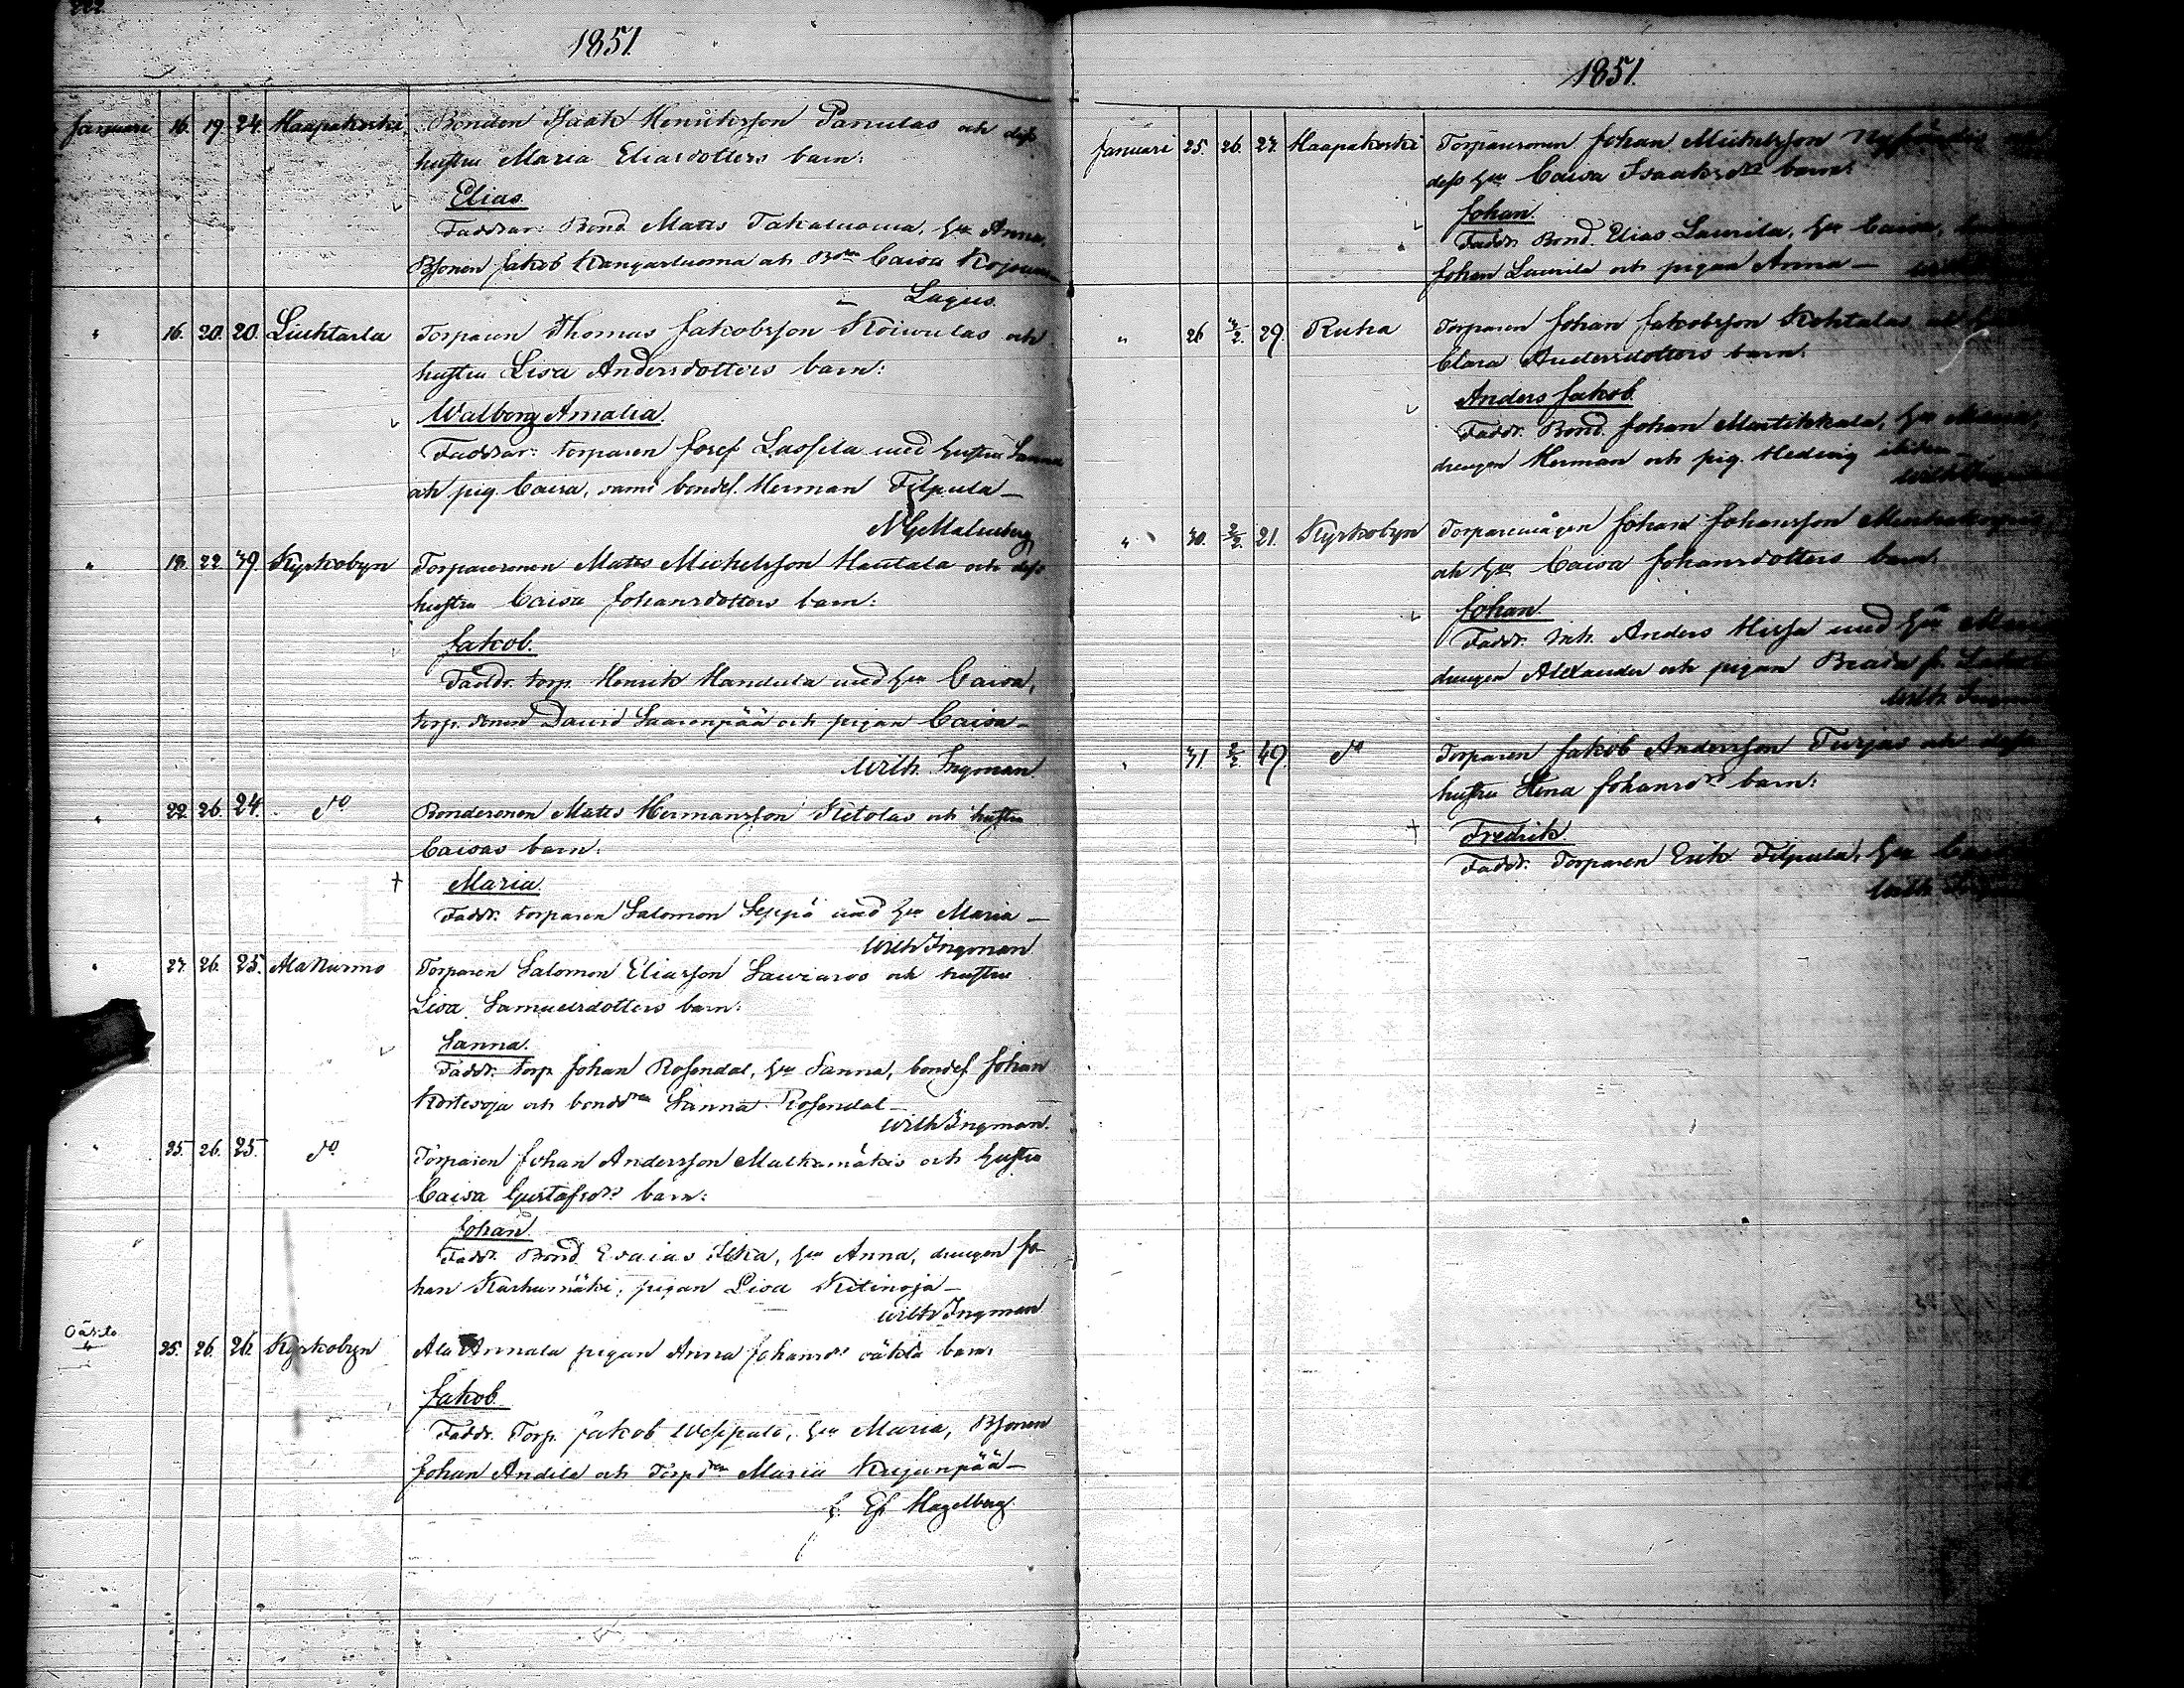 222.
1851.
Januari 16. 19. 24. Haapakoski Bonden Isaak Henriksson Panulas och dess
hustru Maria Eliasdotters barn:
Elias.
Faddrar: Bond. Matts Takaluoma, hu Anna,
Bsonen Jakob Kangasluoma och Bdrn Caisa
Lagus.
" 16. 20. 20. Liuhtarla Torparen Thomas Jakobsson Koivulas och
hustru Lisa Andersdotters barn:
Walborg Amalia.
Faddrar: torparen Josef Lassila med hustru Sanna
och pig. Caisa, samt bondes. Herman Filpula –
N G Malmberg
" 18. 22. 39. Kyrkobyn Torparesonen Matts Michelsson Hautala och dess
hustru Caisa Johansdotters barn:
Jakob.
Faddr. torp. Henrik Handula med hu Caisa,
torp. sonen David Saarenpää och pigan Caisa –
Wilh. Ingman.
" 22. 26. 24. do Bondesonen Matts Hermansson Ketolas och hustru
Caisas barn:
† Maria.
Faddr. torparen Salomon Seppä med hu Maria –
Wilh Ingman
" 23. 26. 25. Ala Nurmo Torparen Salomon Eliasson och hustru
Lisa Samuelsdotters barn:
Sanna.
Faddr. torp. Johan Rosendal, hu Sanna, bondes. Johan
och bonddrn Sanna Rosendal –
Wilh Ingman.
" 25. 26. 25. do Torparen Johan Andersson Malkamäkis och hustru
Caisa Gustafsdrs barn:
Johan.
Faddr. Bond. Esaias Ilka, hu Anna, drengen Jo-
han Karhumäki, pigan Lisa Kitinoja –
Wilh Ingman
Oäkta 4 25. 26. 26. Kyrkobyn Ala Annala pigan Anna Johansdrs oäkta barn:
Jakob.
Faddr. Torp. Jakob, hu Maria, Bsonen
Johan Andila och Torpdrn Maria Kujanpää –
Hagelberg.
1851.
Januari 25. 26. 27. Haapakoski Torparesonen Johan Michelsson
dess hu Caisa Isaaksdrs barn:
Johan.
Faddr. Bond. Elias Laurila, hu Caisa,
Johan Laurila och pigan Anna –
" 26 2/2. 29. Ruha Torparen Johan Jakobsson Kohtalas
Clara Andersdotters barn:
Anders Jakob.
Faddr. Bond. Johan Martikkala, hu
drengen Herman och pig. Hedvig
" 30. 2/2. 21. Kyrkobyn Torparemågen Johan Johansson
och hu Caisa Johansdotters barn:
Johan.
Faddr. Inh. Anders Hirsa med hu
drengen Alexander och pigan Beada
Wilh.
" 31. 2/2. 49. do Torparen Jakob Andersson Turjas och dess
hustru Hena Johansdrs barn:
† Fredrik.
Faddr. Torparen Erik Filpula, hu
Wilh.